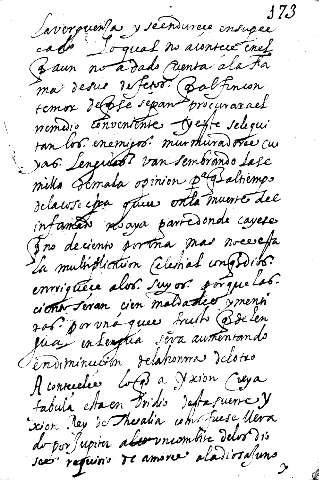 173
la verguenza y se endureze en su pe
cado lo qual no acontece en el
q aun no a dado cuenta a la fa
ma de sus defetos q al fin con
temor de q se sepan procurara el
remedio conveniente y este le qui
tan los enemigos murmuradores cu
yas lenguas van sembrando la se
milla de mala opinion pa q al tiempo
de la
infamado no aya parte donde cayese
q no de ciento por una mas no es esta
la multiplicacion celestial con q dios
enrriqueçe a los suyos porque las
ciento seran cien maldades y menti
ras por una que fruto q de len
gua en lengua sera aumentando
en diminucion de la honrra del otro
Acontecele lo q a yxion cuya
fabula esta en Ovidio desta suerte y
xion Rey de Thesalia como fuese lleva
do por Jupiter a un combite de los dio
ses requirio de amores a la diosa Juno
y